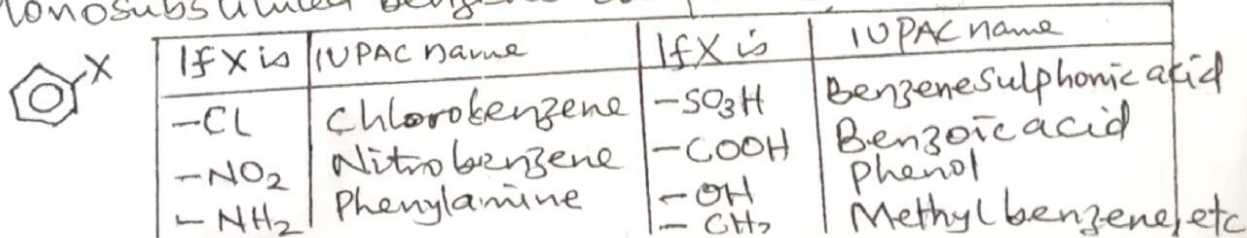 Monosubstituted benzene
X
If X is | IUPAC name | If X is | IUPAC name
-Cl | Chlorobenzene | -SO3H | Benzenesulphonic acid
-NO2 | Nitrobenzene | -COOH | Benzoic acid
-NH2 | Phenylamine | -OH | Phenol
-CH3 | Methylbenzene, etc